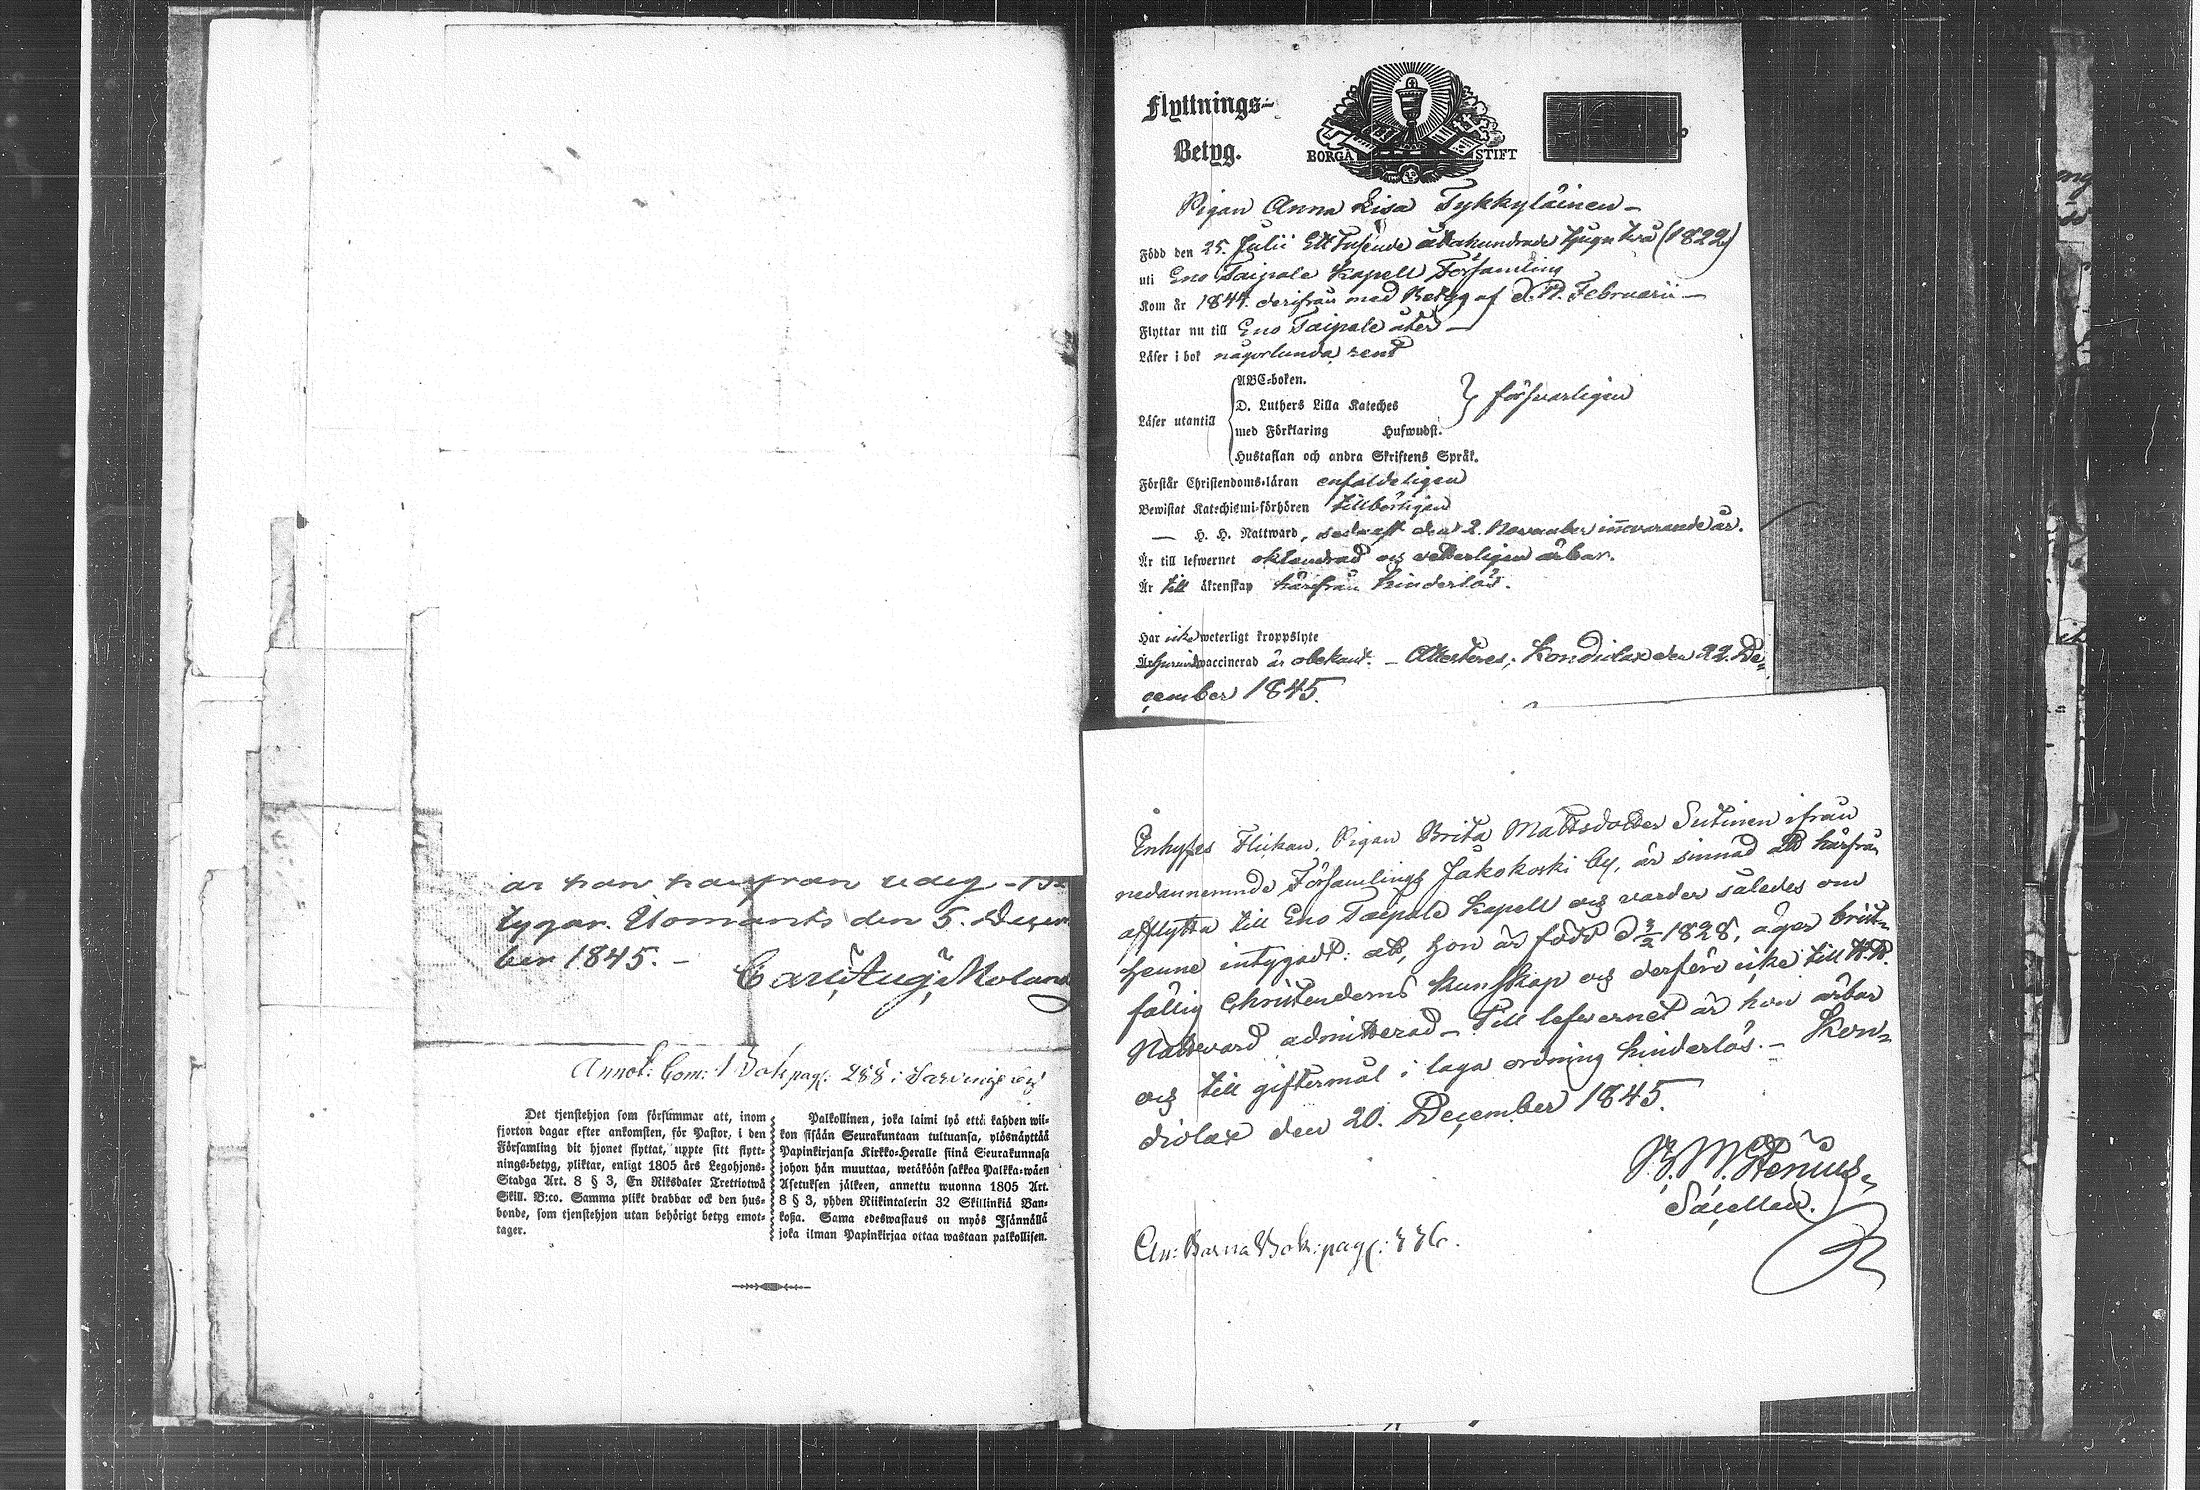 är han härifrån 
tygar. Ilomants den 5. Decem
ber 1845. –
Carl Aug. Moland
Annot: Com: Bok pag. 288 i Sarvinge by
Det tjenstehjon som försummar att, inom
fjorton dagar efter ankomsten, för Pastor, i den
Församling dit hjonet flyttat, uppte sitt flytt-
nings-betyg, pliktar, enligt 1805 års Legohjons-
Stadga Art. 8 § 3, En Riksdaler Trettiotwå
Skill. B:co. Samma plikt drabbar ock den hus-
bonde, som tjenstehjon utan behörigt betyg emot-
tager.
Palkollinen, joka laimi lyö että kahden wii-
kon sisään Seurakuntaan tultuansa, ylösnäyttää
Papinkirjansa Kirkko-Heralle siinä Seurakunnasa
johon hän muuttaa, wetäköön sakkoa Palkka-wäen
Asetuksen jälkeen, annettu wuonna 1805 Art.
8 § 3, yhden Riikintalerin 32 Skillinkiä Ban-
koßa. Sama edeswastaus on myös Isännällä
joka ilman Papinkirjaa ottaa wastaan palkollisen.
Flyttnings-
Betyg.
BORGÅ STIFT
Pigan Anna Lisa Tykkyläinen –
Född den 25. Julii Ett tusende åttahundrade tjugu två (1822)
uti Eno Taipale Kapell Församling
Kom år 1844. derifrån med Betyg af d. Februarii –
Flyttar nu till Eno Taipale åter –
Läser i bok någorlunda rent
Läser utantill
ABC-boken.
D. Luthers Lilla Kateches
med Förklaring Hufwudst.
Hustaflan och andra Skriftens Språk.
försvarligen
Förstår Christendoms-läran enfaldeligen
Bewistat Katechismi-förhören tillbörligen
— H. H. Nattward, sednast den 2. November innevarande år.
Är till lefwernet oklandrad och vetterligen ärbar.
Är till äktenskap härifrån hinderlös.
Har icke weterligt kroppslyte
vaccinerad är obekant. – Attesteres; Kondiolax den 22. De-
cember 1845.
Enhyses Flickan, Pigan Brita Mattsdotter Sutinen ifrån
nedannemnde Församlings Jakokoski by, är sinnad att härfrån
afflytta till Eno Taipale Kapell och varder således om
henne intygadt: att, hon är född d. 3/2 1828, äger brist-
fällig Christendoms kunskap och derföre icke till H. H.
Nattvard admitterad – Till lefvernet är hon ärbar
och till giftermål i laga ordning hinderlös. – Kon-
diolax den 20. December 1845.
M. Stenius,
Sacellan.
An: Barna Bok: pag: 336.